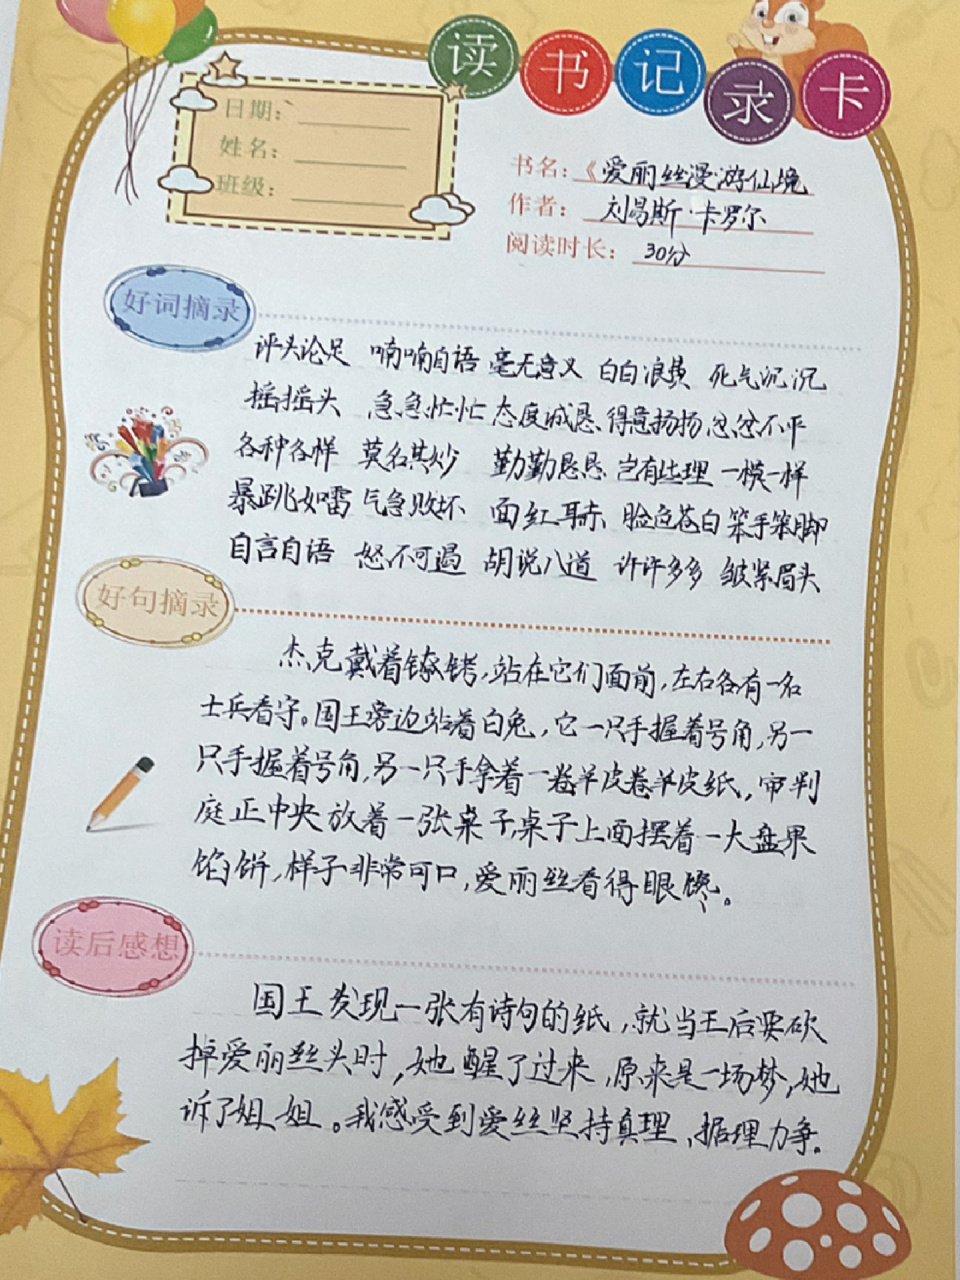 读书记录卡
日期：
姓名：
班级：
书名：《爱丽丝漫游仙境
作者：刘易斯·卡罗尔
阅读时长：30分
好词摘录
评头论足 喃喃自语 毫无意义 白白浪费 死气沉沉
摇摇头 急急忙忙 态度诚恳 得意扬扬 忿忿不平
各种各样 莫名其妙 勤勤恳恳 岂有此理 一模一样
暴跳如雷 气急败坏 面红耳赤 脸色苍白 笨手笨脚
自言自语 怒不可遏 胡说八道 许许多多 皱紧眉头
好句摘录
杰克戴着镣铐,站在它们面前,左右各有一名
士兵看守。国王旁边站着白兔,它一只手握着号角,另一
只手握着号角,另一只手拿着一卷羊皮卷羊皮纸,审判
庭正中央放着一张桌子,桌子上面摆着一大盘果
馅饼,样子非常可口,爱丽丝看得眼馋。
读后感想
国王发现一张有诗句的纸,就当王后要砍
掉爱丽丝头时,她醒了过来,原来是一场梦,她
诉了姐姐。我感受到爱丝坚持真理、据理力争。